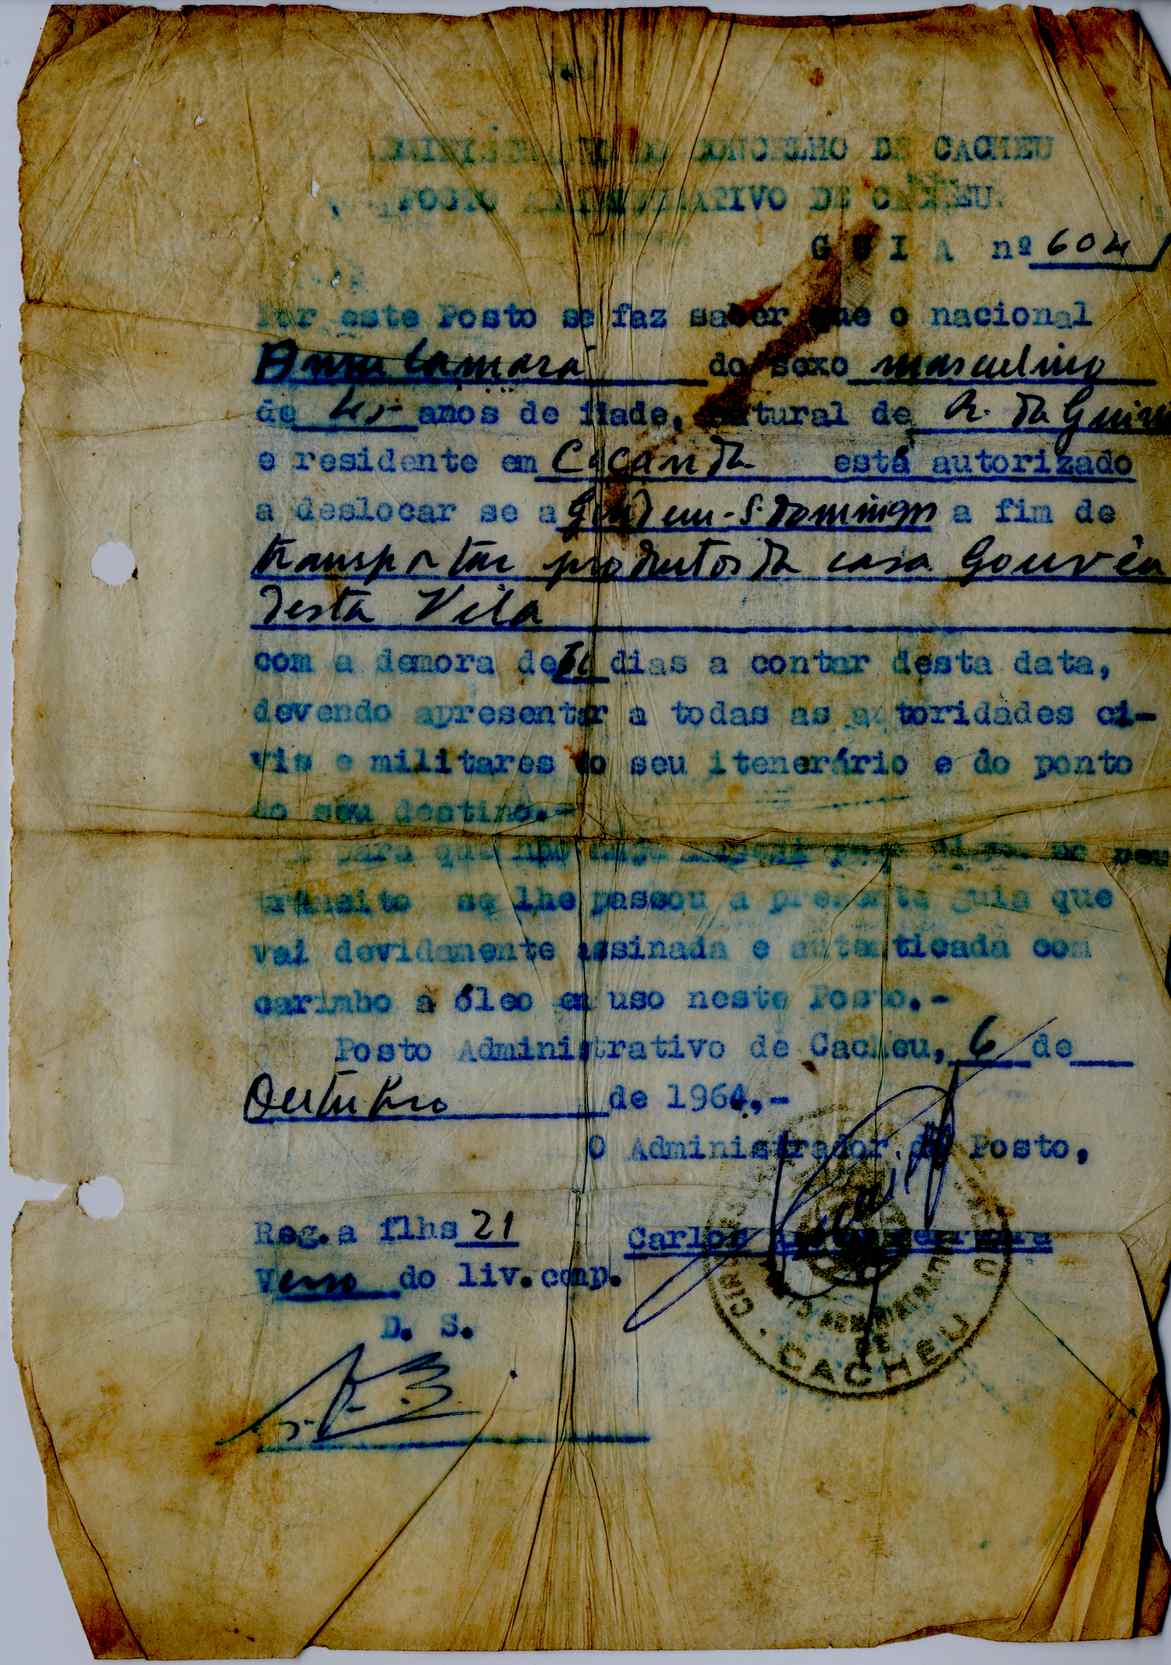 CONCELHO DE CACHEU
POSTO ADMINISTRATIVO DE CACHEU.
GUIA nº 604
Por este Posto se faz saber que o nacional
Camará do sexo masculino
de anos de idade, natural de R. da Guiné
e residente em Cacanda está autorizado
a deslocar se a S. Domingos a fim de
transportar produtos da casa Gouvêa
desta Vila
com a demora de dias a contar desta data,
devendo apresentar a todas as autoridades ci-
vis e militares do seu itenerário e do ponto
do seu destino.-
para que não no seu
trânsito se lhe passou a presente guia que
vai devidamente assinada e autenticada com
carimbo a óleo em uso neste Posto.-
Posto Administrativo de Cacheu, 6 de
Outubro de 1964.-
O Administrador do Posto,
Reg.a flhs 21 Carlos
Verso do liv.comp.
D. S.
CACHEU